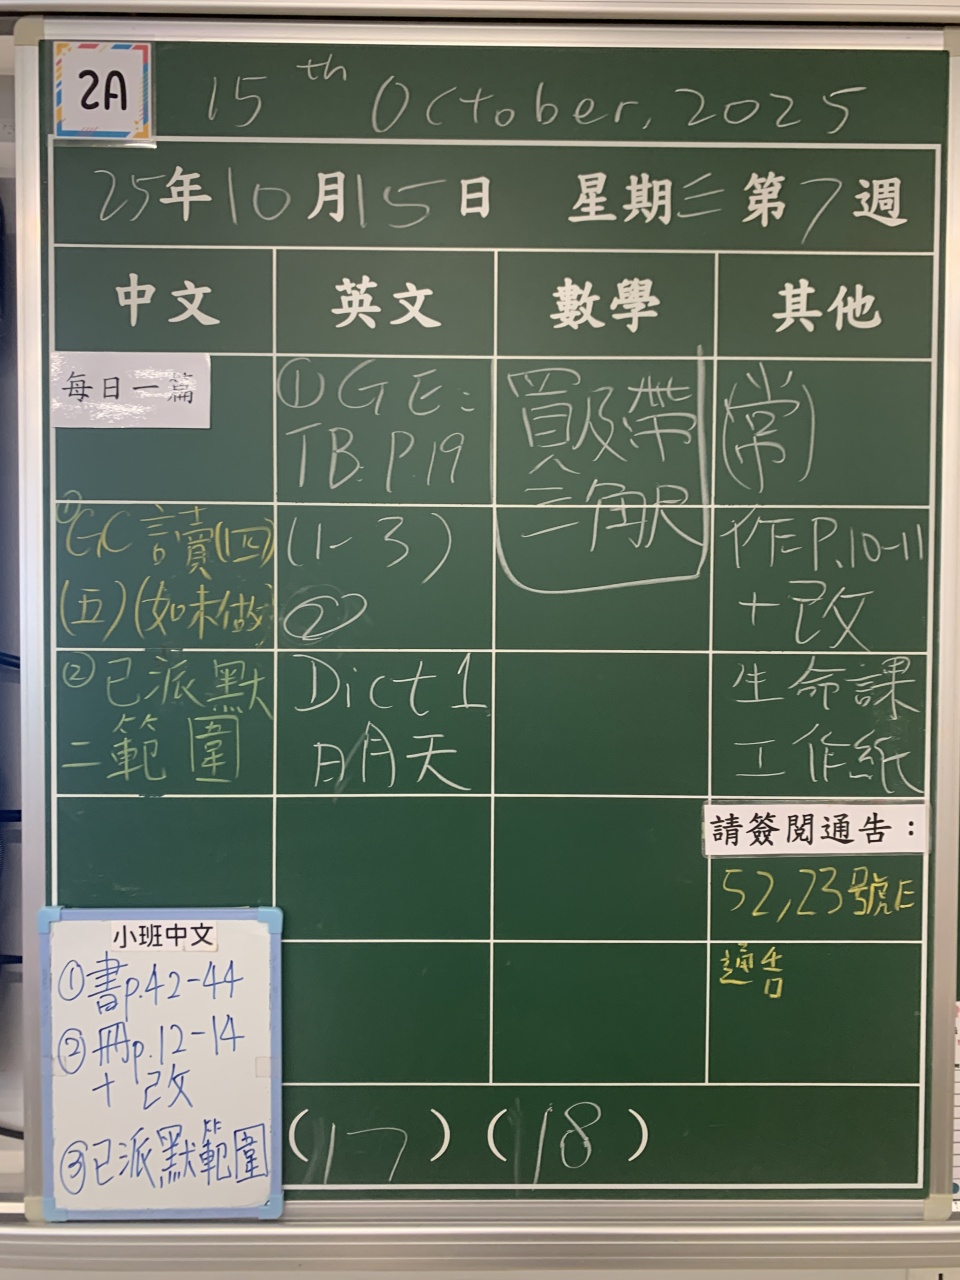 2A
15th October, 2025
25年10月15日 星期三第7週
中文
英文
數學
其他
每日一篇
①GC 讀(四)
(五)(如未做)
②已派默
二範圍
①GE:
TB. P.19
(1-3)
②
Dict 1
明天
買及帶
三角尺
(常)
作P.10-11
+改
生命課
工作紙
請簽閱通告：
52,23號E
通告
小班中文
①書p.42-44
②冊p.12-14
+改
③已派默範圍
(17) (18)